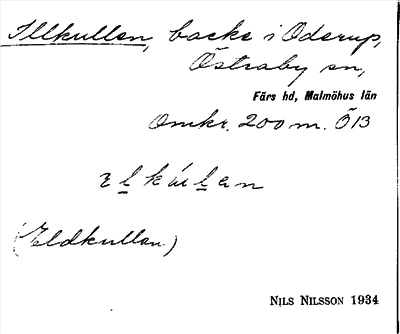 Illkullen, backe i Oderup,
Östraby sn,
Färs hd, Malmöhus län
Omkr. 200 m. Ö 13
(Eldkullen)
NILS NILSSON 1934